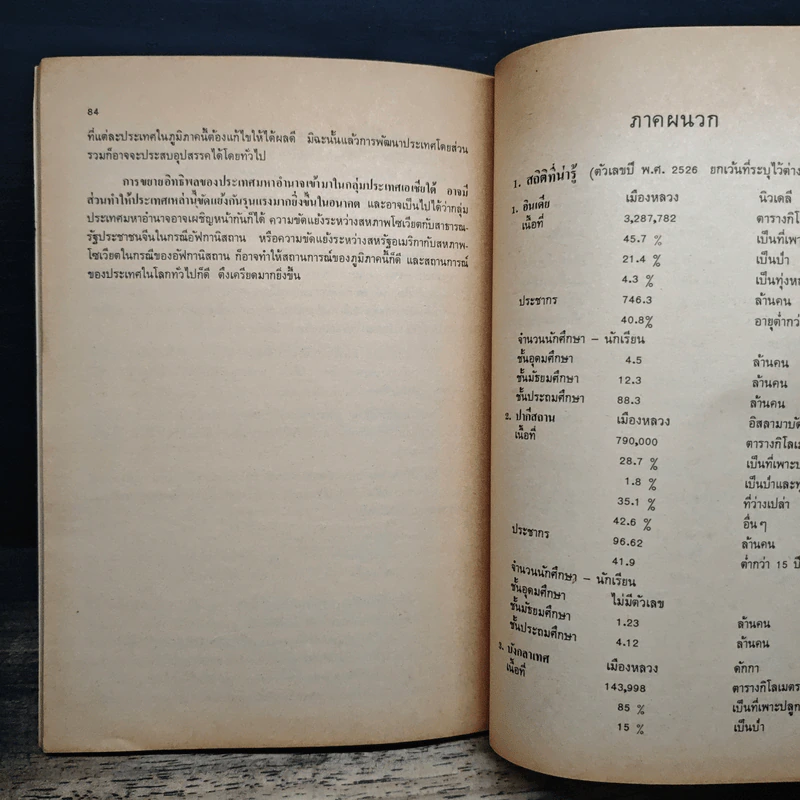 84
ที่แต่ละประเทศในภูมิภาคนี้ต้องแก้ไขให้ได้ผลดี มิฉะนั้นแล้วการพัฒนาประเทศโดยส่วน
รวมก็อาจจะประสบอุปสรรคได้โดยทั่วไป
การขยายอิทธิพลของประเทศมหาอำนาจเข้ามาในกลุ่มประเทศเอเชียใต้ อาจมี
ส่วนทำให้ประเทศเหล่านี้ขัดแย้งกันรุนแรงมากยิ่งขึ้นในอนาคต และอาจเป็นไปได้ว่ากลุ่ม
ประเทศมหาอำนาจอาจเผชิญหน้ากันก็ได้ ความขัดแย้งระหว่างสหภาพโซเวียตกับสาธารณ-
รัฐประชาชนจีนในกรณีอัฟกานิสถาน หรือความขัดแย้งระหว่างสหรัฐอเมริกากับสหภาพ-
โซเวียตในกรณีของอัฟกานิสถาน ก็อาจทำให้สถานการณ์ของภูมิภาคนี้ก็ดี และสถานการณ์
ของประเทศในโลกทั่วไปก็ดี ตึงเครียดมากยิ่งขึ้น
ภาคผนวก
1. สถิติที่น่ารู้ (ตัวเลขปี พ.ศ. 2526 ยกเว้นที่ระบุไว้ต่าง
1. อินเดีย เมืองหลวง นิวเดลี
เนื้อที่ 3,287,782 ตารางกิโล
45.7 % เป็นที่เพา
21.4 % เป็นป่า
4.3 % เป็นทุ่งห
ประชากร 746.3 ล้านคน
40.8% อายุต่ำกว่
จำนวนนักศึกษา – นักเรียน
ชั้นอุดมศึกษา 4.5 ล้านคน
ชั้นมัธยมศึกษา 12.3 ล้านคน
ชั้นประถมศึกษา 88.3 ล้านคน
2. ปากีสถาน เมืองหลวง อิสลามาบั
เนื้อที่ 790,000 ตารางกิโลเม
28.7 % เป็นที่เพาะป
1.8 % เป็นป่าและทุ
35.1 % ที่ว่างเปล่า
42.6 % อื่นๆ
ประชากร 96.62 ล้านคน
41.9 ต่ำกว่า 15 ปี
จำนวนนักศึกษา – นักเรียน
ชั้นอุดมศึกษา ไม่มีตัวเลข
ชั้นมัธยมศึกษา 1.23 ล้านคน
ชั้นประถมศึกษา 4.12 ล้านคน
3. บังกลาเทศ เมืองหลวง ดักกา
เนื้อที่ 143,998 ตารางกิโลเมตร
85 % เป็นที่เพาะปลูก
15 % เป็นป่า